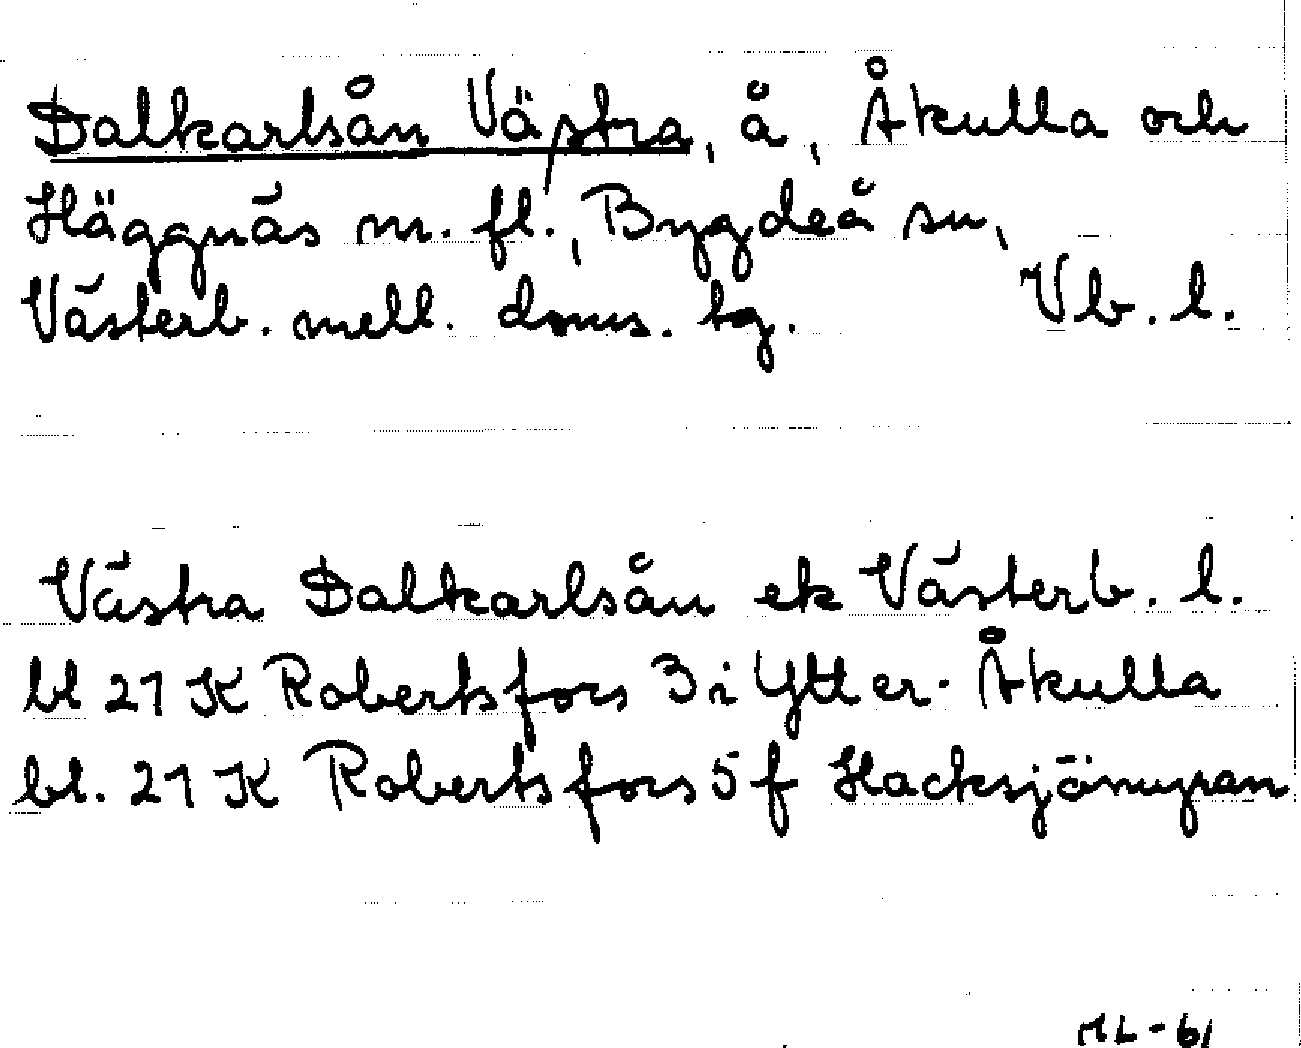 Dalkarlsån Västra, å, Åkulla och
Häggnäs m. fl., Bygdeå sn,
Västerb. mell. doms. tg. Vb. l.
Västra Dalkarlsån ek Västerb. l.
bl 21 K Robertsfors 3 i Ytter-Åkulla
bl. 21 K Robertsfors 5 f Hacksjömyran
ML-61